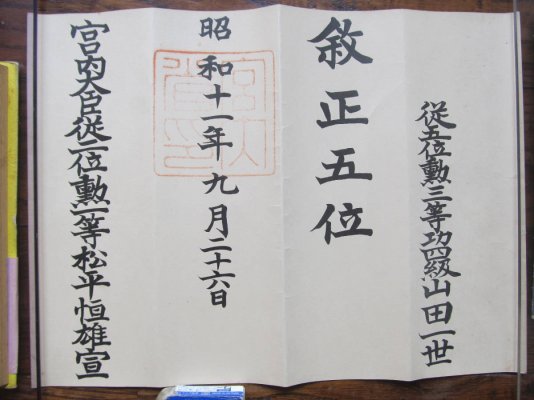 従五位勲三等功四級山田一世
敘正五位
昭和十一年九月二十六日
宮内大臣従二位勲一等松平恒雄宣